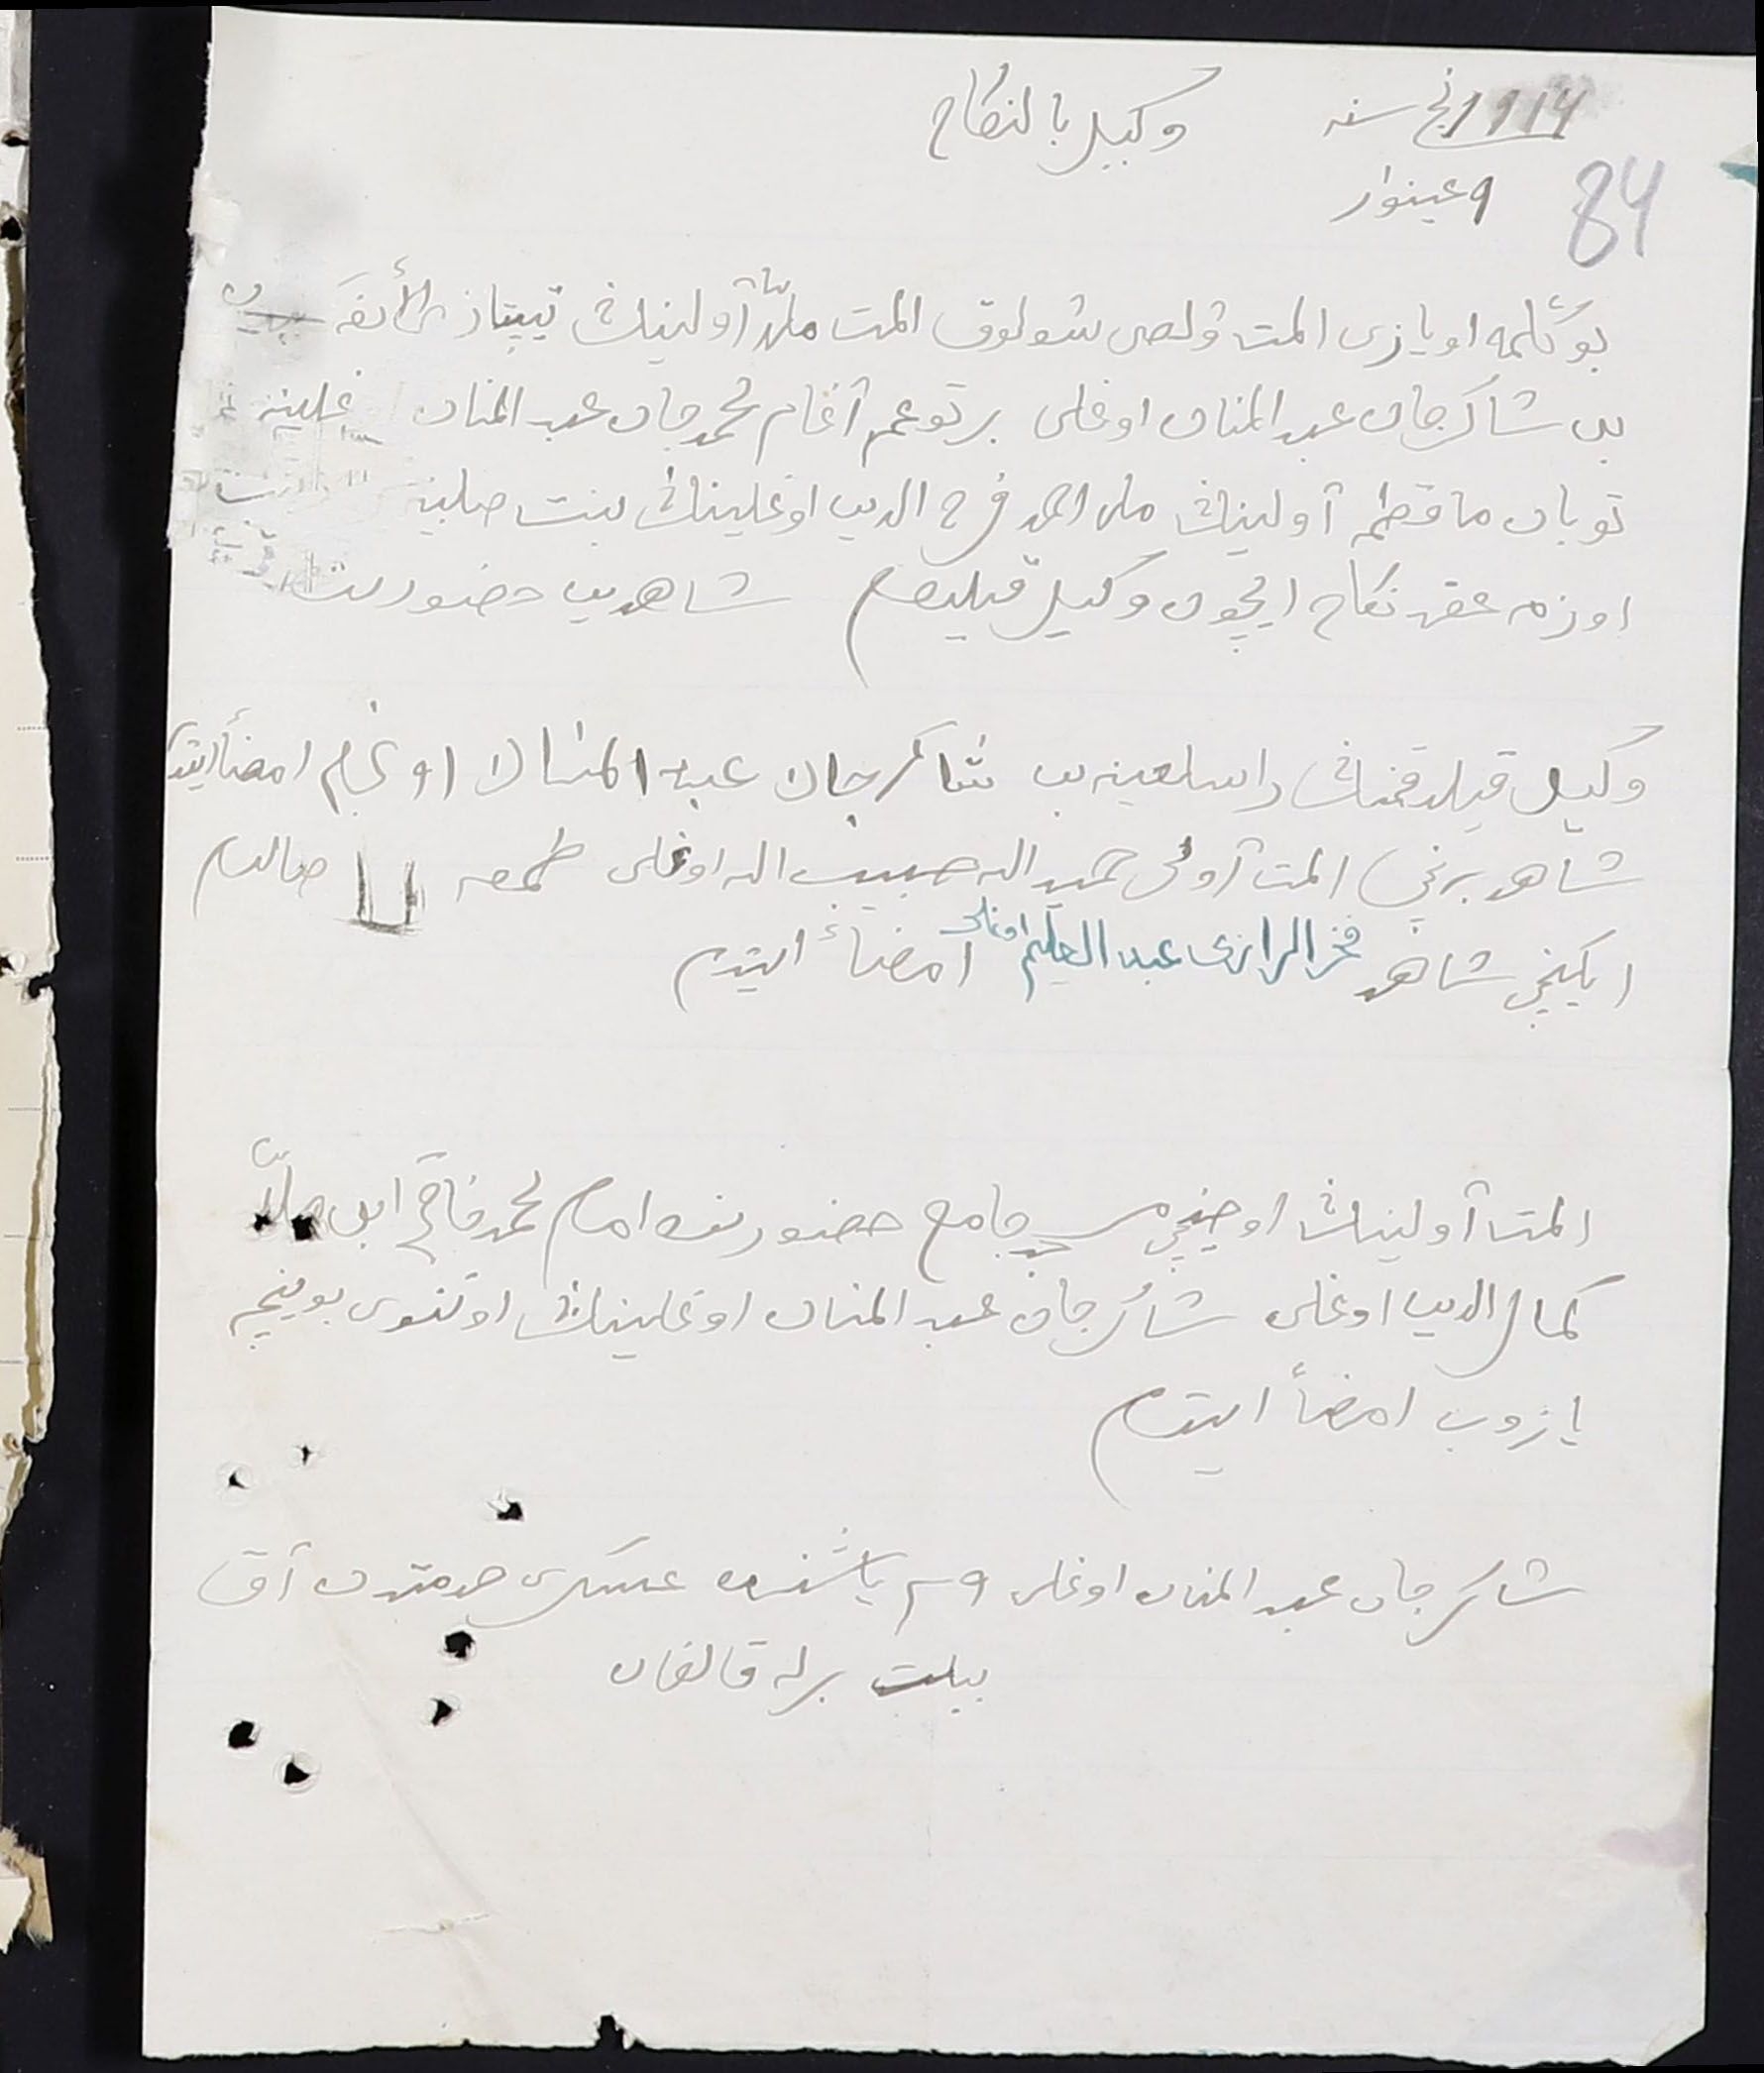 1914 نچی سنه وکیل بالنکاح
84
9 غینوار
بوگلمه اویازی المت ولصی شولوق المت آولینك
بن شاکرجان عبد المنان اوغلی برتوغم آغام محمدجان عبد المنان غلینه
توبان ماقطه آولینك ملا احمد فرح الدین اوغلینك بنت صلبیه
اوزمه عقد نکاح ایچون وکیل قیلدم شاهدین حضورنده
وکیل قیلدقمنك راسلغینه بن شاکرجان عبد المنان اوغلی امضأ ایتدم
شاهد برنچی المت آولی حمید الله حبیب الله اوغلی طمعه صالدم
ایکنچی شاهد فخر الرازی عبد العلیم اوغلی امضأ ایتدم
المت آولینك اوچنچی مسجد جامع حضورنده امام محمد فاتح ابن ملا
کمال الدین اوغلی شاکرجان عبد المنان اوغلینك اوتنوی بوینچه
یازوب امضأ ایتدم
شاکرجان عبد المنان اوغلی یاشنده عسکری خدمتدن آق
بیلت برله قالغان